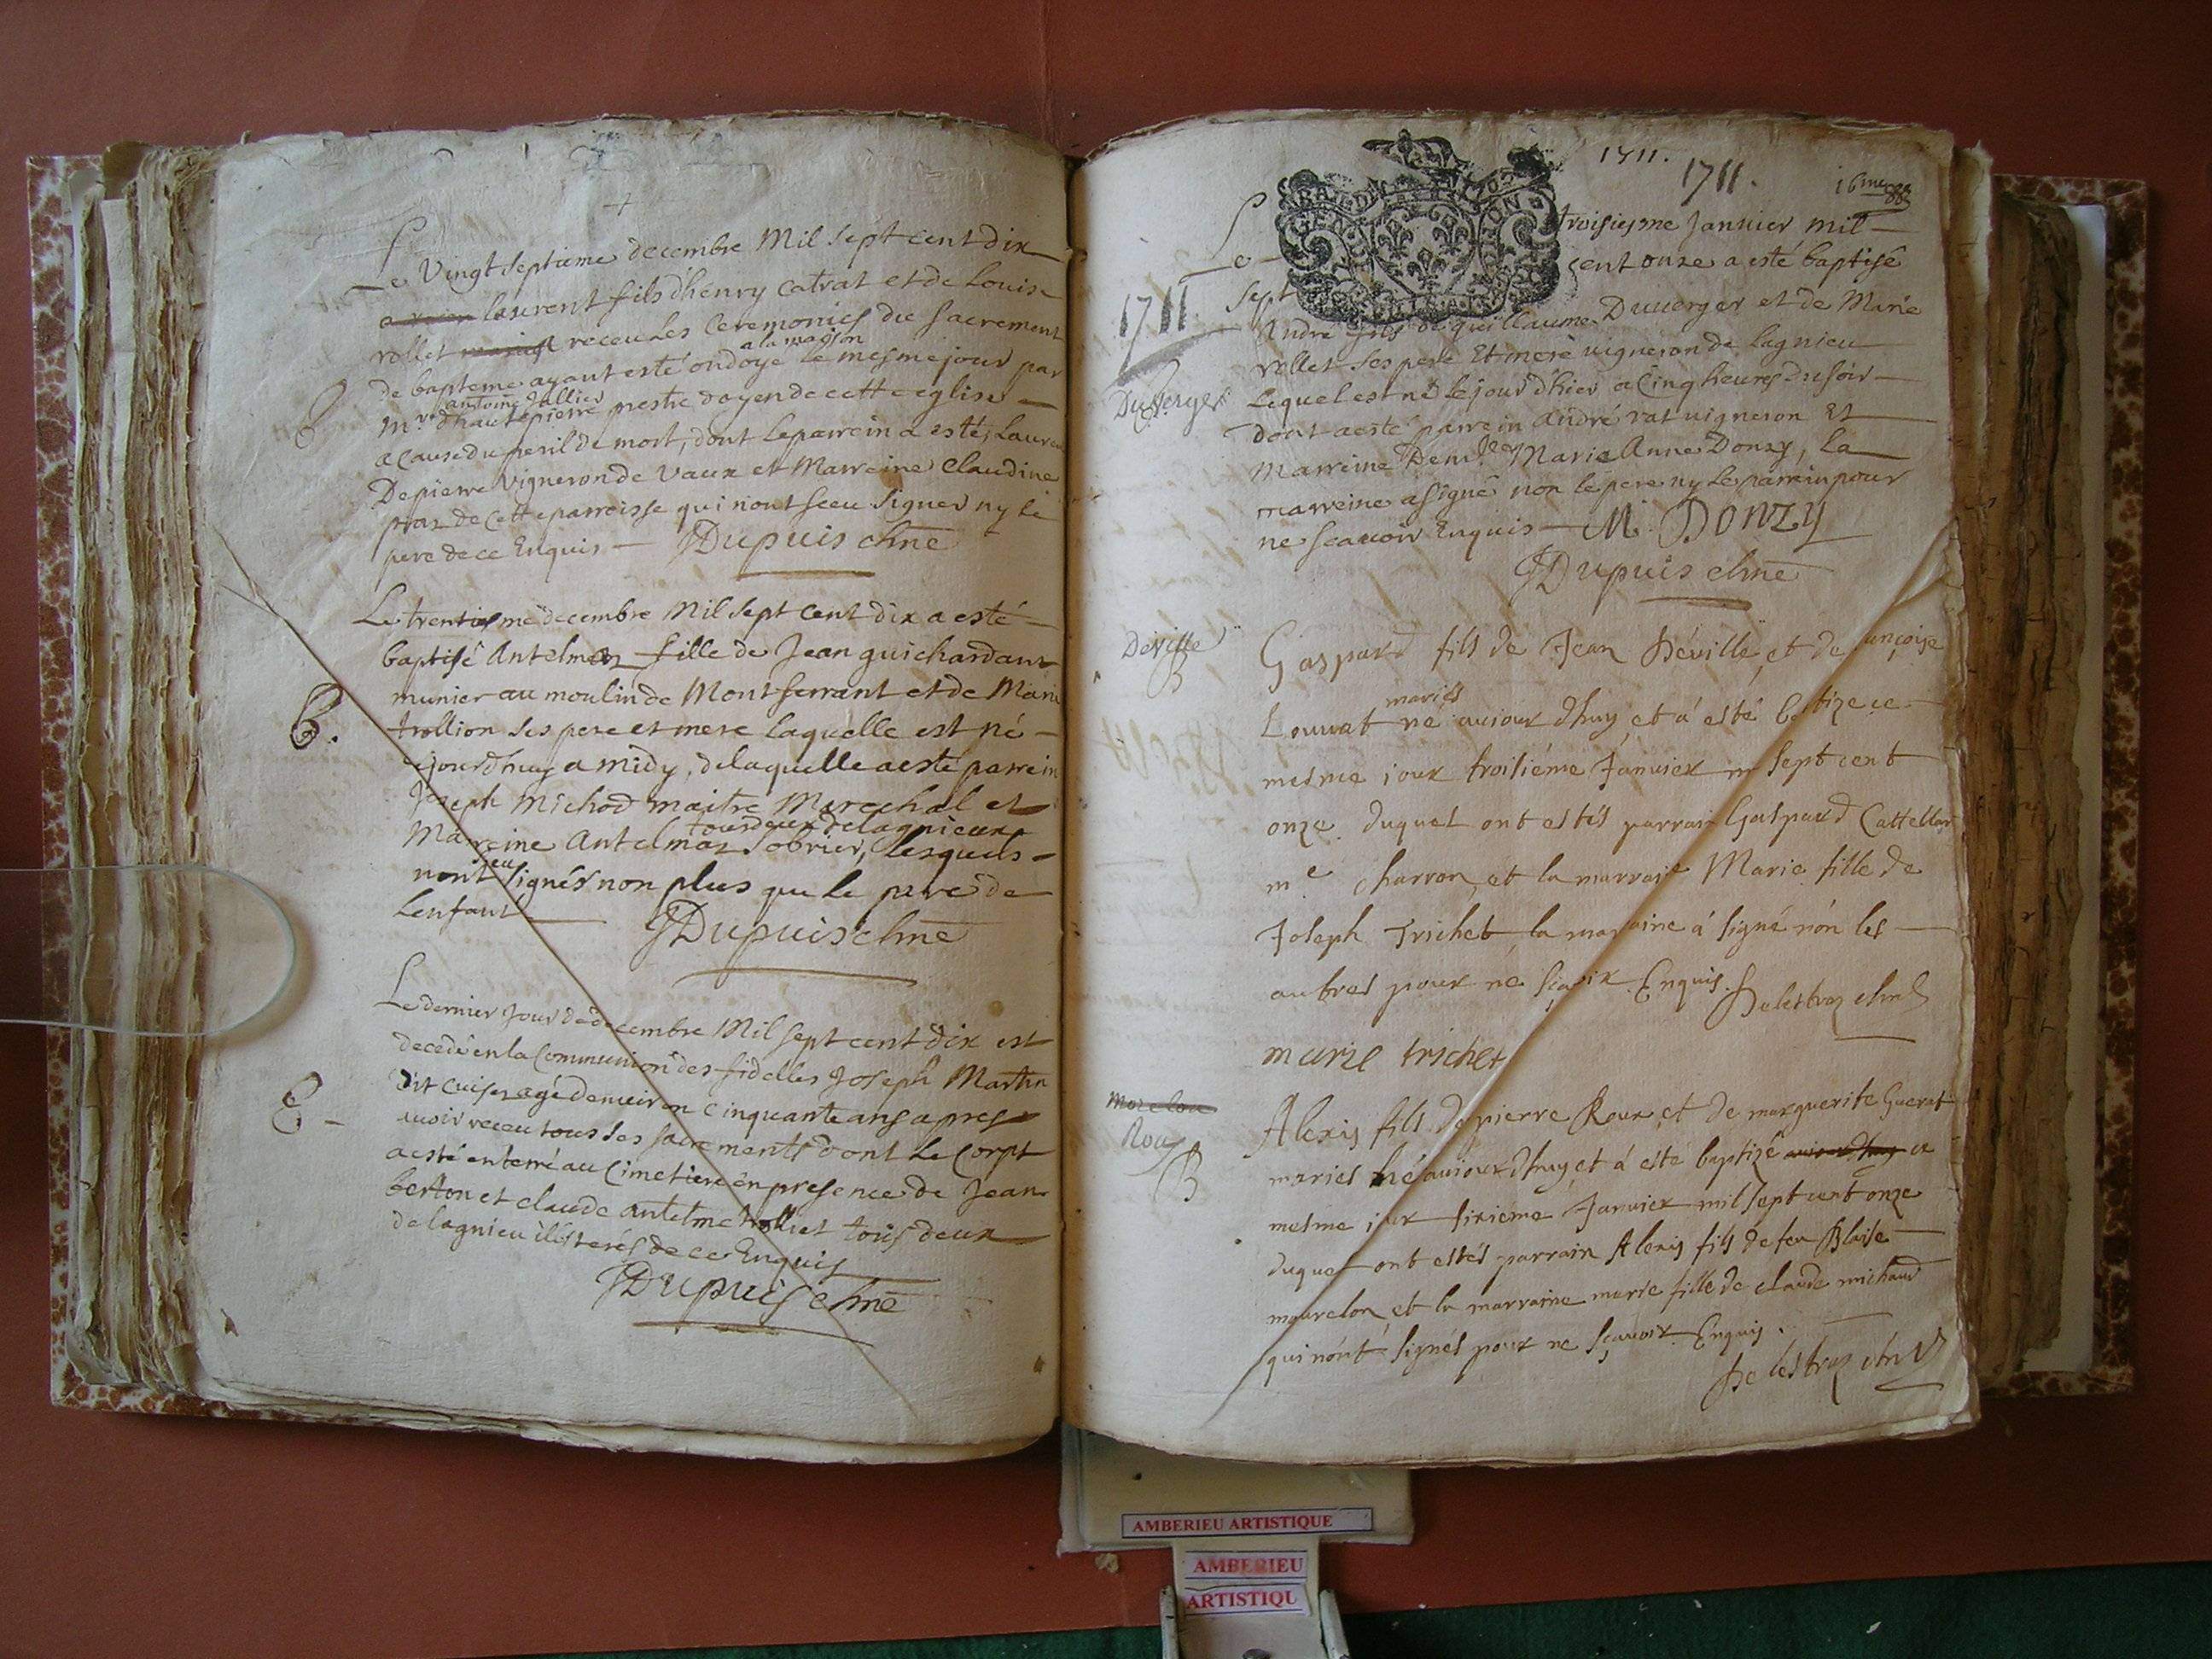 Le Vingt septieme decembre Mil sept cent dix
laurent fils d'henry catrat et de Louise
rollet receu Les Ceremonies du sacrement
a la maison
de bapteme ayant esté ondoyé le mesme jour par
antoine Jallier
Mre d'hautepierre prestre doyen de cette eglise
a cause du peril de mort, dont le parrein a esté Laurent
Depierre Vigneron de Vaux et Marreine Claudine
praz de cette parroisse qui n'ont sceu signer ny le
pere de ce Enquis — JDupuis chne
Le trentiesme decembre Mil sept cent dix a esté
baptisé Antelmaz fille de Jean guichardant
B.
munier au moulin de Montferrant et de Marie
trollion ses pere et mere laquelle est né
cejourdhuy a midy, de laquelle a esté parrein
Joseph Michod maitre Marechal et
tous deux de lagnieux
Marreine Antelmaz Sobrier, lesquels
nont sceu signés non plus que le pere de
Lenfant
JDupuis chne
Le dernier jour de decembre Mil sept cent dix est
decedé en la Communion des fidelles Joseph Martin
dit Cuisez agé denviron cinquante ans apres
E –
avoir receu tous ses sacrements dont le Corps
a esté enterré au Cimetiere en presence de Jean
berton et claude antelme trolliet tous deux
de lagnieu illiterés de ce Enquis
JDupuis chne
1711.
1711.
16me
Le troisiesme Janvier mil
sept cent onze a esté baptisé
1711
André fils de guillaume Duverger et de Marie
rollet ses pere et mere vigneron de lagnieu
Duverger
Lequel est né le jour d'hier a Cinq heures du soir
dont a esté parrein André rat vigneron et
marreine Demlle Marie Anne Donzy, la
marreine a signé non le pere ny le parrein pour
ne scavoir Enquis — M. DONZY
JDupuis chne
Deville
B
Gaspard fils de Jean Deville et de ançoise
mariés
Louvat né aujour d'huy et á esté baptize ce
mesme jour troisiéme Janvier m sept cent
onze. duquel ont estés parrain Gaspard Cattellar
me charron et la marraine Marie fille de
Joseph Trichet la marraine á signé nón les
autres pour ne sçavoir Enquis. Delestraz chne
marie trichet
Morelon
Roux
B
Alexis fils de pierre Roux et de marguerite Guerat
mariés né aujourd'huy et á esté baptizé aujourdhuy ce
mesme jour sixiéme Janvier mil sept cent onze
duquel ont estés parrain Alexis fils de feu Blaise
maurelon et la marraine marie fille de claude michaud
qui n'ont signés pour ne sçavoir Enquis.
Delestraz chne
AMBERIEU ARTISTIQUE
AMBERIEU
ARTISTIQU